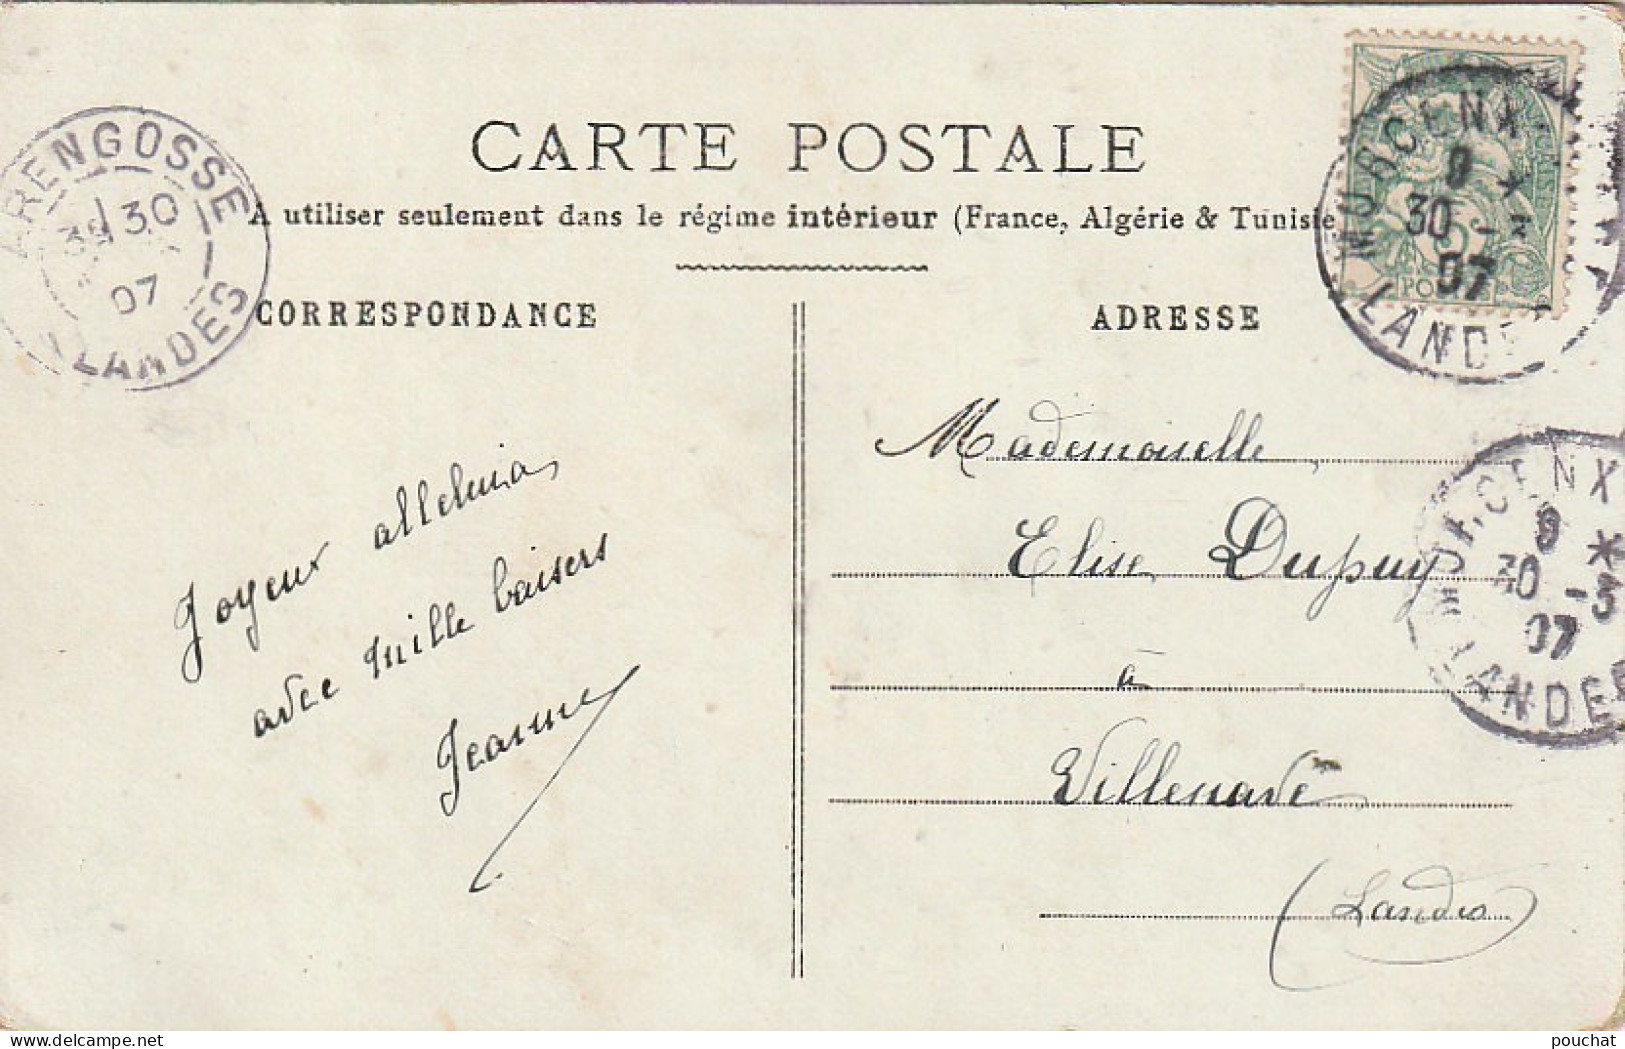 CARTE POSTALE
A utiliser seulement dans le régime intérieur (France, Algérie & Tunisie
CORRESPONDANCE
ADRESSE
ARENGOSSE
30
07
LANDES
MORCENX
9 *
30 -3
07
LANDE
POSTES
MORCENX
9 *
30 -3
07
LANDES
Joyeux alleluia
avec mille baisers
Jeanne
Mademoiselle
Elise Dupuy
à
Villenave
(Landes)
pouchat